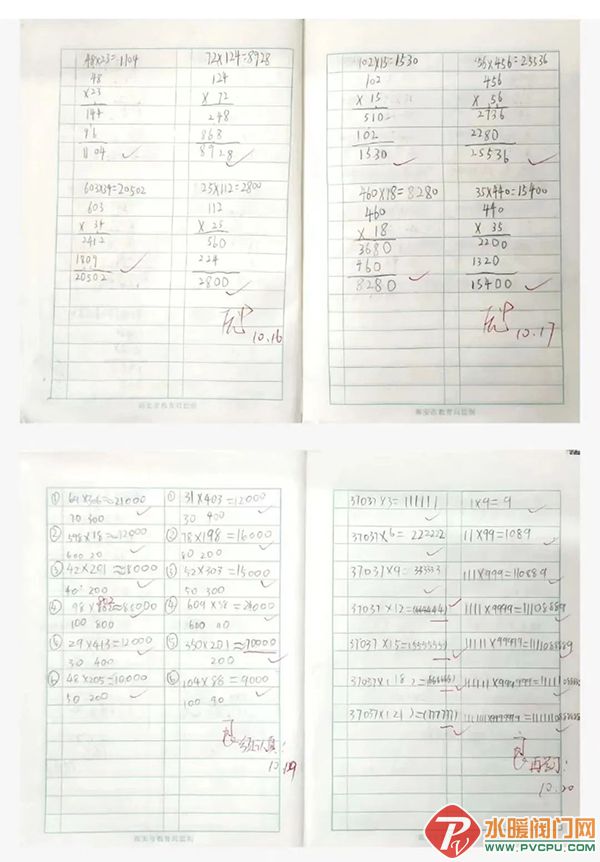 48×23=1104
48
×23
144
96
1104
72×124=8928
124
× 72
248
868
8928
603×34=20502
603
× 34
2412
1809
20502
25×112=2800
112
× 25
560
224
2800
10.16
102×15=1530
102
× 15
510
102
1530
56×456=25536
456
× 56
2736
2280
25536
460×18=8280
460
× 18
3680
460
8280
35×440=15400
440
× 35
2200
1320
15400
10.17
① 69×306≈21000
70 300
② 598×18≈12000
600 20
③ 42×201≈8000
40 200
④ 98×802≈80000
100 800
⑤ 29×413≈12000
30 400
⑥ 48×205≈10000
50 200
① 31×403≈12000
30 400
② 78×198≈16000
80 200
③ 52×303≈15000
50 300
④ 609×38≈24000
⑤ 350×201≈70000
200
⑥ 104×88≈9000
100 90
10.19
37037×3=111111
37037×6=222222
37037×9=333333
37037×12=(444444)
37037×15=(555555)
37037×(18)=(666666)
37037×(21)=(777777)
1×9=9
11×99=1089
111×999=110889
1111×9999=11108889
10.20
水暖阀门网
WWW.PVCPU.COM